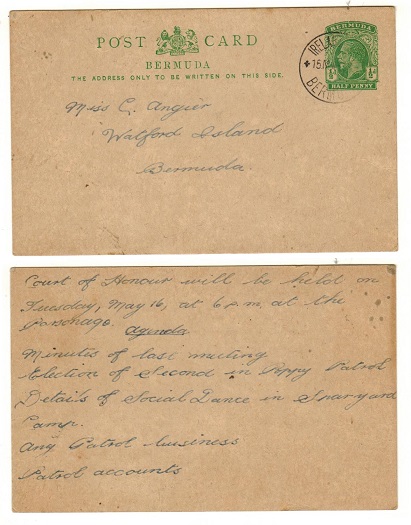 POST CARD
BERMUDA
THE ADDRESS ONLY TO BE WRITTEN ON THIS SIDE.
BERMUDA
½d ½d
HALF PENNY
IRELA
15
BER
Miss C. Angier
Watford Island
Bermuda.
Court of Honour will be held on
Tuesday, May 16, at 6 p.m. at the
Parsonage.
Agenda
Minutes of last meeting
Election of Second in Poppy Patrol
Details of Social Dance in
Camp.
Any Patrol business
Patrol accounts